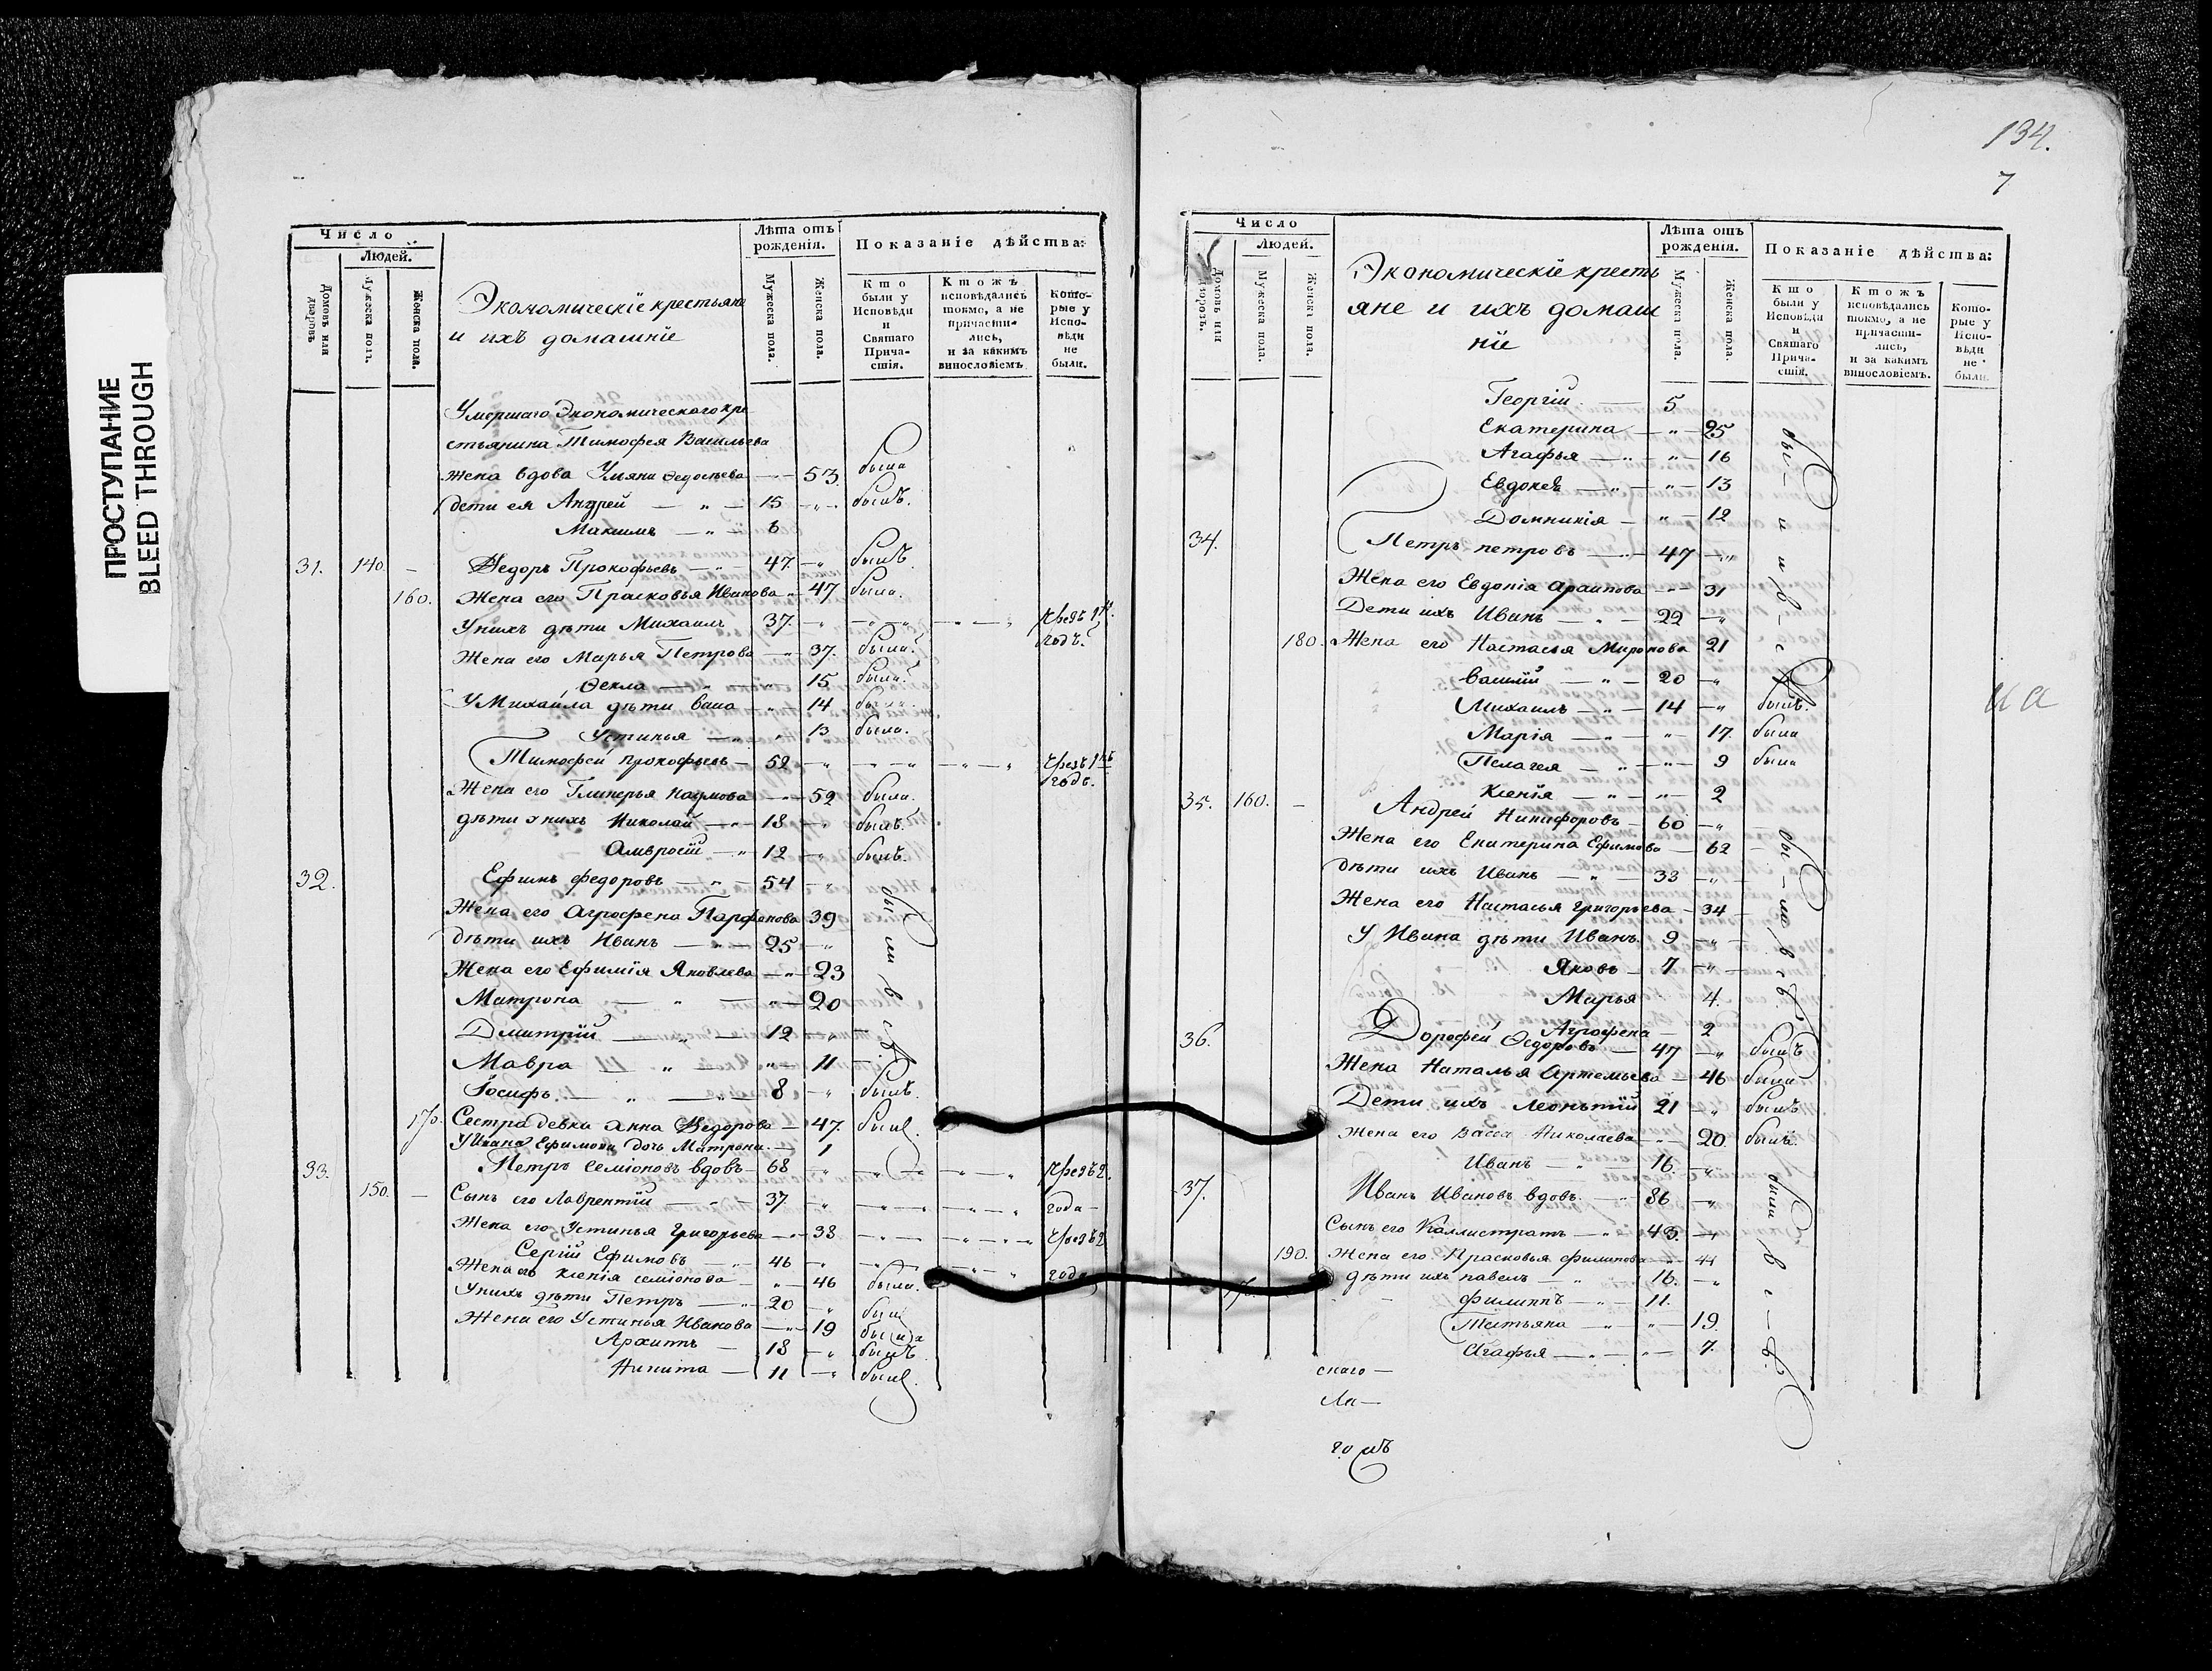 ПРОСТУПАНИЕ
BLEED THROUGH
Число
Людей.
Домовъ или дворовъ
Мужеска полъ.
Женска пола.
Экономическіе крестьяне
и ихъ домашніе
Лѣта отъ рожденія.
Мужеска пола.
Женска пола.
Показаніе дѣйства:
Кто были у Исповѣди и Святаго Причастія.
Ктожъ исповѣдались токмо, а не причастились, и за какимъ винословіемъ
Которые у Исповѣди не были.
Умершаго Экономическаго кре
стьянина Тимофея Васильева
жена вдова Ульяна Федосѣева — 53 была
дети ея Андрей — " — 15 — " — былъ.
Максимъ — " — 6
31. 140. — Федоръ Прокофьевъ — " — 47 — " былъ.
160. Жена его Прасковья Иванова — 47 была.
У нихъ дѣти Михаилъ 37 — " — " — " — " чрезъ 1
годъ.
Жена его Марья Петрова — " — 37. была.
Фекла — " — " — 15 была.
У Михаила дѣти Васа — " — 14
Устинья — " — 13 была.
Тимофей Прокофьевъ — 52 — " — " — " — " — " чрезъ 1
годъ.
Жена его Гликерья Наумова — " — 52 была.
дѣти у нихъ Николай — " — 18 — " былъ.
Амвросій — " 12 — " былъ.
32. Ефимъ Федоровъ — " — 54 — "
были в с
Жена его Агрофена Парфенова 39
дѣти ихъ Иванъ — " — 25 — "
Жена его Ефимія Яковлева — " — 23
Матрона — " — " — 20
Дмитрій — " — 12 — "
Мавра — " — " — 11
Іосифъ. — " — 8 — " былъ.
170. Сестра девка Анна Федорова — 47. была.
У Ивана Ефимова дочь Матрона — 1
33. Петръ Семіоновъ вдовъ — 68 — " — " — " — " чрезъ 2.
150. — Сынъ его Лаврентій — " — 37 — " — " — " — " года —
Жена его Устинья Григорьева — " — 38 — " — " — " — " чрезъ 2
Сергій Ефимовъ — 46 — " — " — " — " года
Жена его Ксенія Семіонова — " — 46 была.
У нихъ дѣти Петръ — " — 20 — " былъ
Жена его Устинья Иванова — " — 19 была
Архипъ — 18 — " былъ
Никита — 11 — " былъ.
134.
7
Число
Людей.
Домовъ или дворовъ.
Мужеска пола.
Женска пола.
Экономическіе кресть
яне и ихъ домаш
ніе
Лѣта отъ рожденія.
Мужеска пола.
Женска пола.
Показаніе дѣйства:
Кто были у Исповѣди и Святаго Причастія.
Ктожъ исповѣдались токмо, а не причастились, и за какимъ винословіемъ.
Которые у Исповѣди не были.
Георгій — 5
Екатерина — " — 25
Агафья — " — " — 16
Евдокея — " — " — 13
Домникія — " — 12
34. Петръ Петровъ — " — 47 — "
Жена его Евдокія — " — 31
Дети ихъ Иванъ — " — 22 — "
180. Жена его Настасья Миронова 21
Василій — " — 20 — "
Михаилъ — " — 14 — " былъ.
Марія — " — " — 17. была
Пелагея — " — " — 9 была
Ксенія — " — " — 2
35. 160. — Андрей Никифоровъ — 60 — "
Жена его Екатерина Ефимова — 62
дѣти ихъ Иванъ — " — 33 — "
Жена его Настасья Григорьева — 34
У Ивана дѣти Иванъ. 9 — "
Яковъ — 7 — "
Марья 4.
Агрофена — 2
36. Дорофей Федоровъ — 47 — " былъ
Жена Наталья Артемьева — 46 была
Дети ихъ Леонътій 21 — " былъ
Жена его Васса Николаева — " — 20. былъ.
Иванъ — " — 16. — "
37. Иванъ Ивановъ вдовъ. — " 86 — "
были в с
Сынъ его Каллистратъ — " 43. — "
190. Жена его Прасковья Филипова — " 44
дѣти ихъ Павелъ — " 16. — "
Филиппъ — " — 11.
Татьяна — " — " — 19.
Агафья — " — " — 7.
скаго —
Ли —